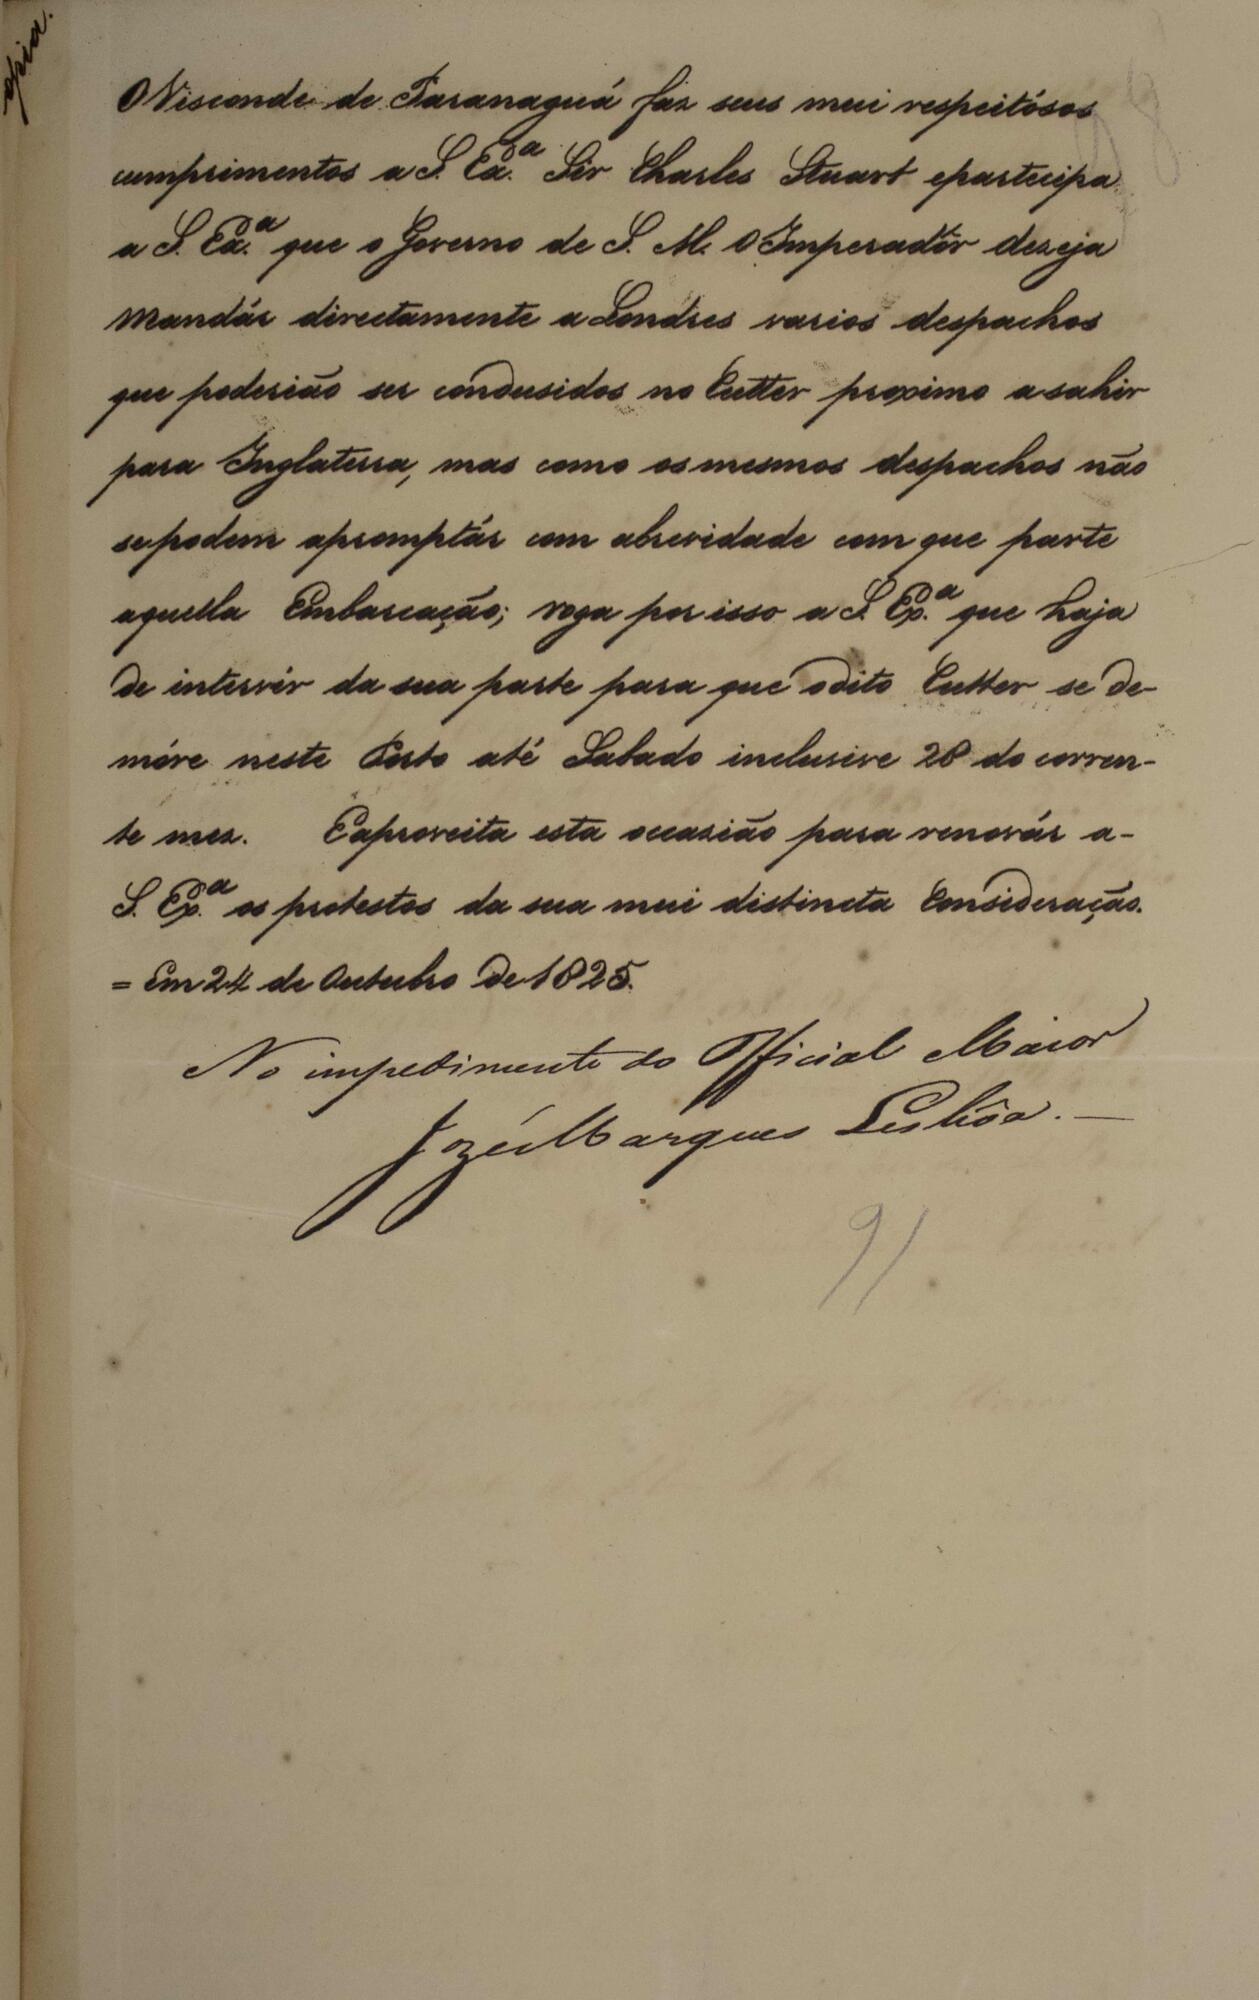 opia.
O Visconde de Paranaguá faz seus mui respeitósos
cumprimentos a S. Ex.ª Sir Charles Stuart e participa
a S. Ex.ª que o Governo de S. M. O Imperadôr dezeja
mandár directamente a Londres varios despachos
que poderião ser condusidos no Cutter proximo a sahir
para Inglaterra, mas como os mesmos despachos não
se podem apromptár com a brevidade com que parte
aquella Embarcação; roga por isso a S. Ex.ª que haja
de intervir da sua parte para que o dito Cutter se de-
móre neste Porto até Sabado inclusive 28 do corren-
te mez. E aproveita esta occazião para renovár a-
S. Ex.ª os protestos da sua mui distincta Consideração.
= Em 24 de Outubro de 1825.
No impedimento do Official Maior
Jozé Marques Lisbôa. —
91